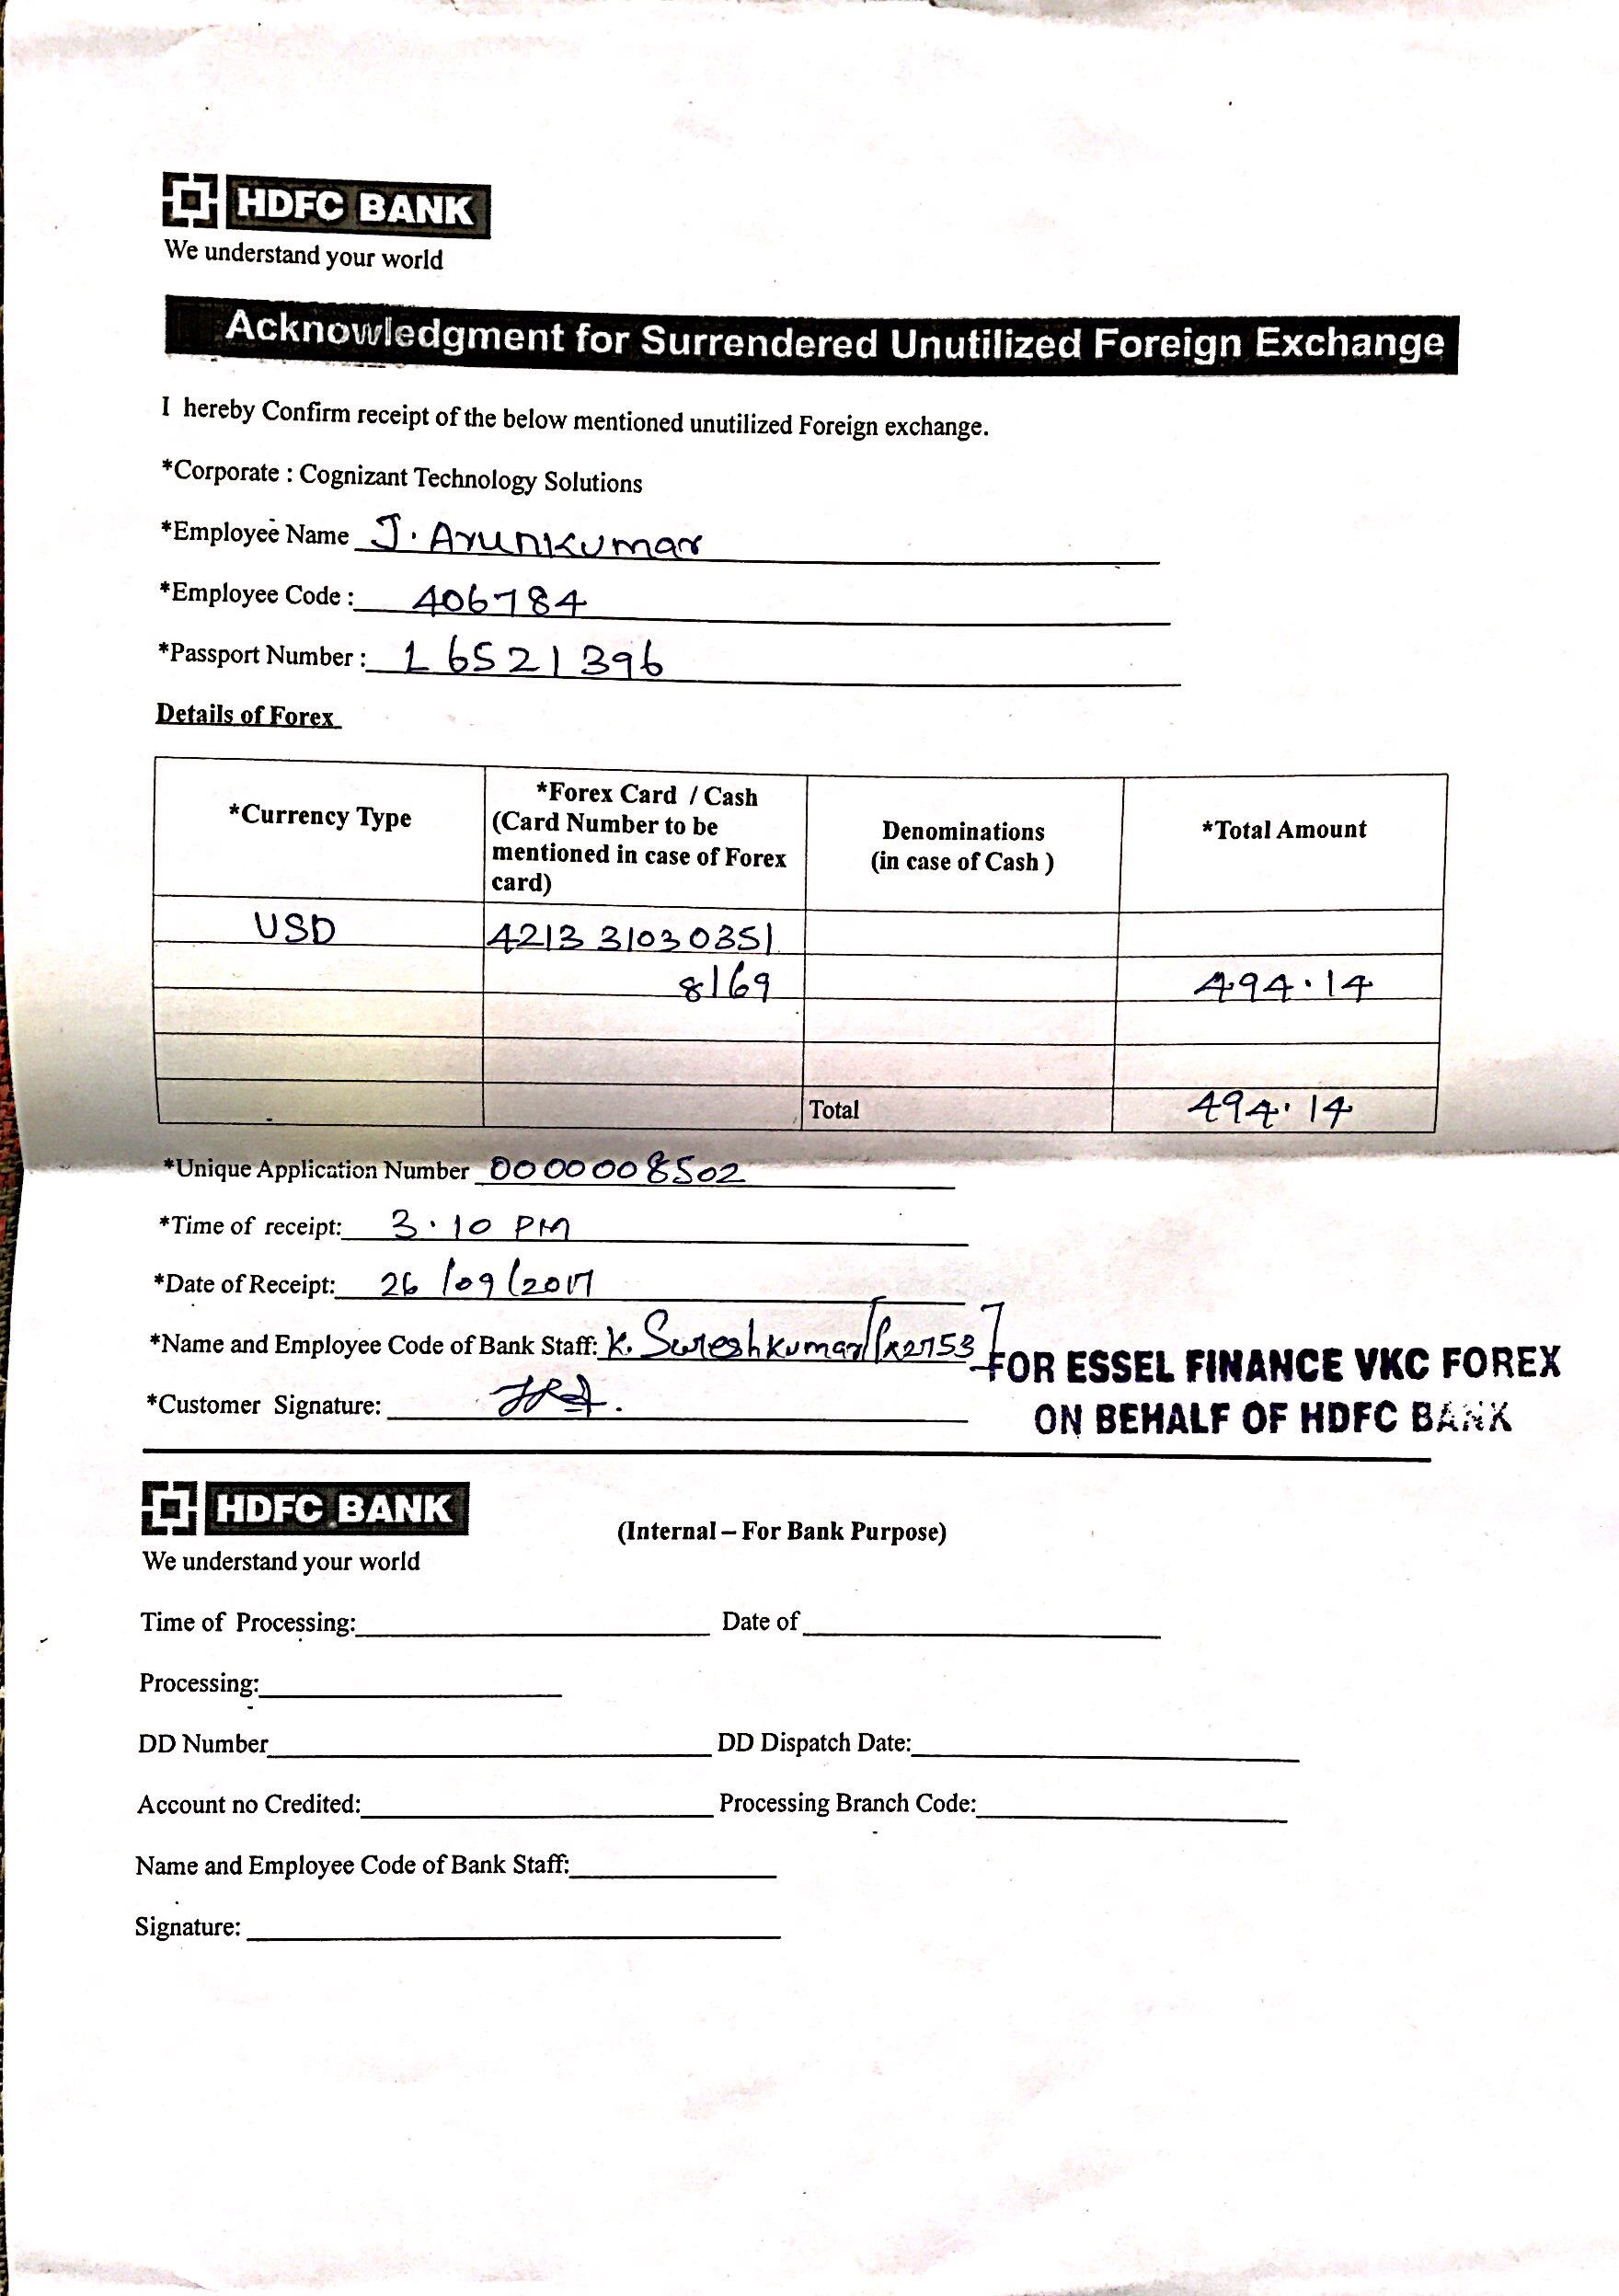 HDFC BANK
We understand your world
Acknowledgment for Surrendered Unutilized Foreign Exchange
I hereby Confirm receipt of the below mentioned unutilized Foreign exchange.
*Corporate : Cognizant Technology Solutions
*Employee Name J. Arunkumar
*Employee Code : 406784
*Passport Number : L6521396
Details of Forex
*Currency Type *Forex Card / Cash (Card Number to be mentioned in case of Forex card) Denominations (in case of Cash ) *Total Amount
USD 4213 31030351
8169 494.14
Total 494.14
*Unique Application Number 0000008502
*Time of receipt: 3.10 PM
*Date of Receipt: 26/09/2017
*Name and Employee Code of Bank Staff: K. Sureshkumar
FOR ESSEL FINANCE VKC FOREX
ON BEHALF OF HDFC BANK
*Customer Signature:
HDFC BANK
We understand your world
(Internal – For Bank Purpose)
Time of Processing: Date of
Processing:
DD Number DD Dispatch Date:
Account no Credited: Processing Branch Code:
Name and Employee Code of Bank Staff:
Signature: